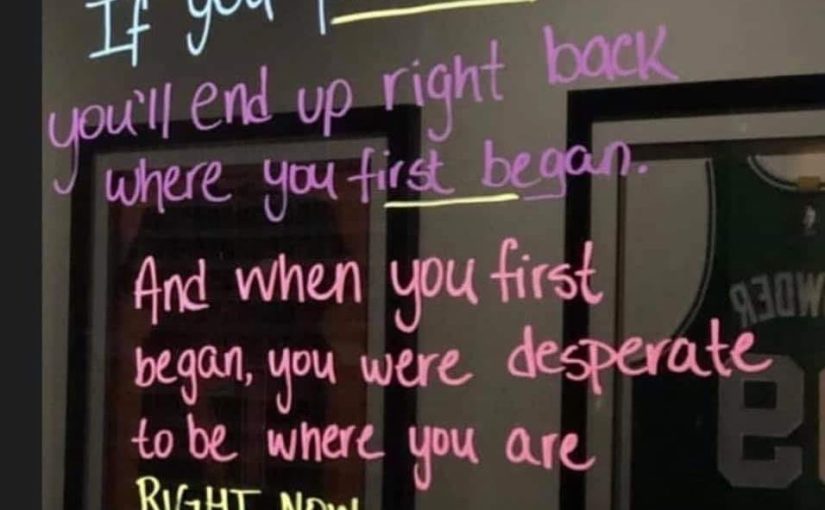 If you
you'll end up right back
where you first began.
And when you first
began, you were desperate
to be where you are
RIGHT NOW